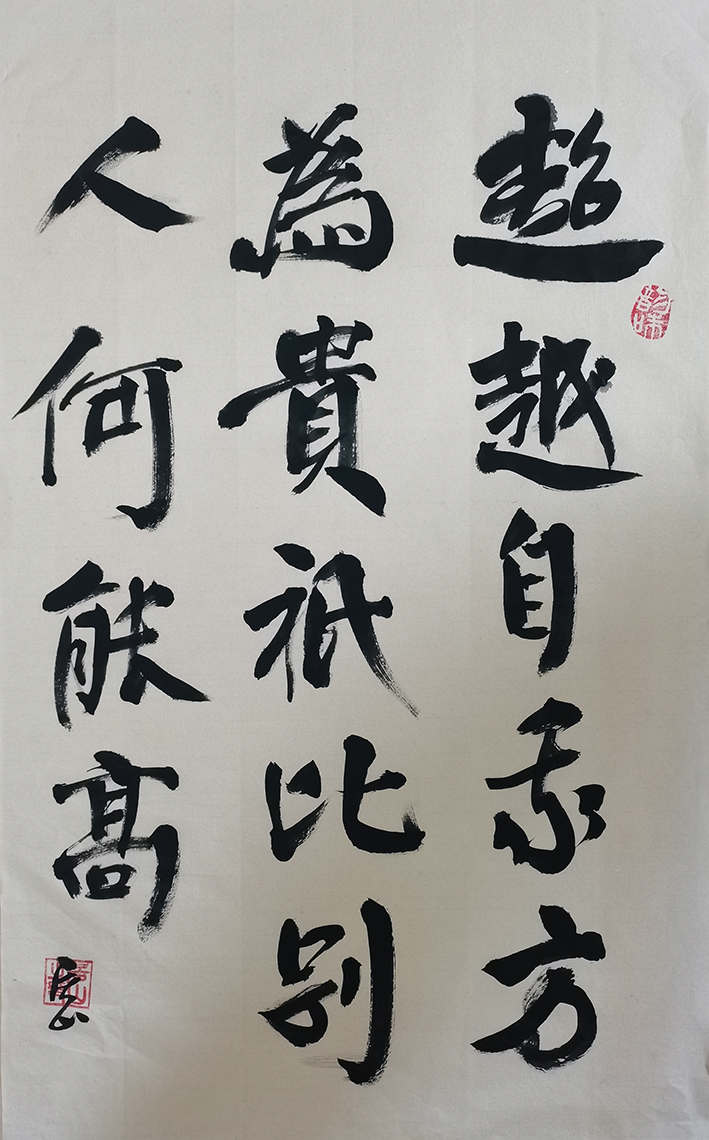 超越自我方
為貴祇比别
人何能高